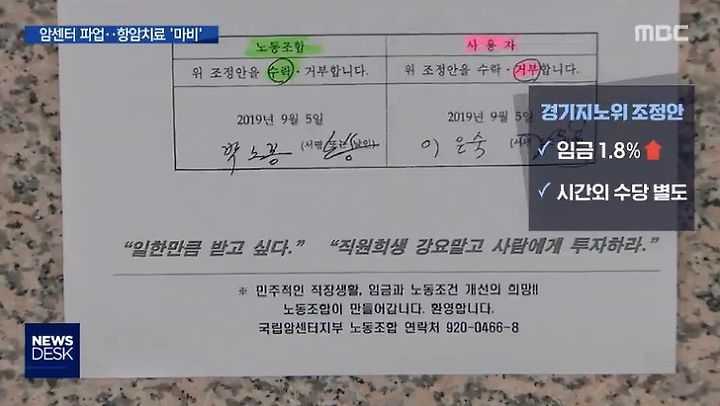 암센터 파업‥항암치료 '마비'
MBC
노동조합
사용자
위 조정안을 수락·거부합니다.
위 조정안을 수락·거부합니다.
2019년 9월 5일
2019년 9월 5일
(서명
이 은숙
경기지노위 조정안
임금 1.8%
시간외 수당 별도
“일한만큼 받고 싶다.” “직원희생 강요말고 사람에게 투자하라.”
※ 민주적인 직장생활, 임금과 노동조건 개선의 희망!!
노동조합이 만들어갑니다. 환영합니다.
국립암센터지부 노동조합 연락처 920-0466~8
NEWS
DESK